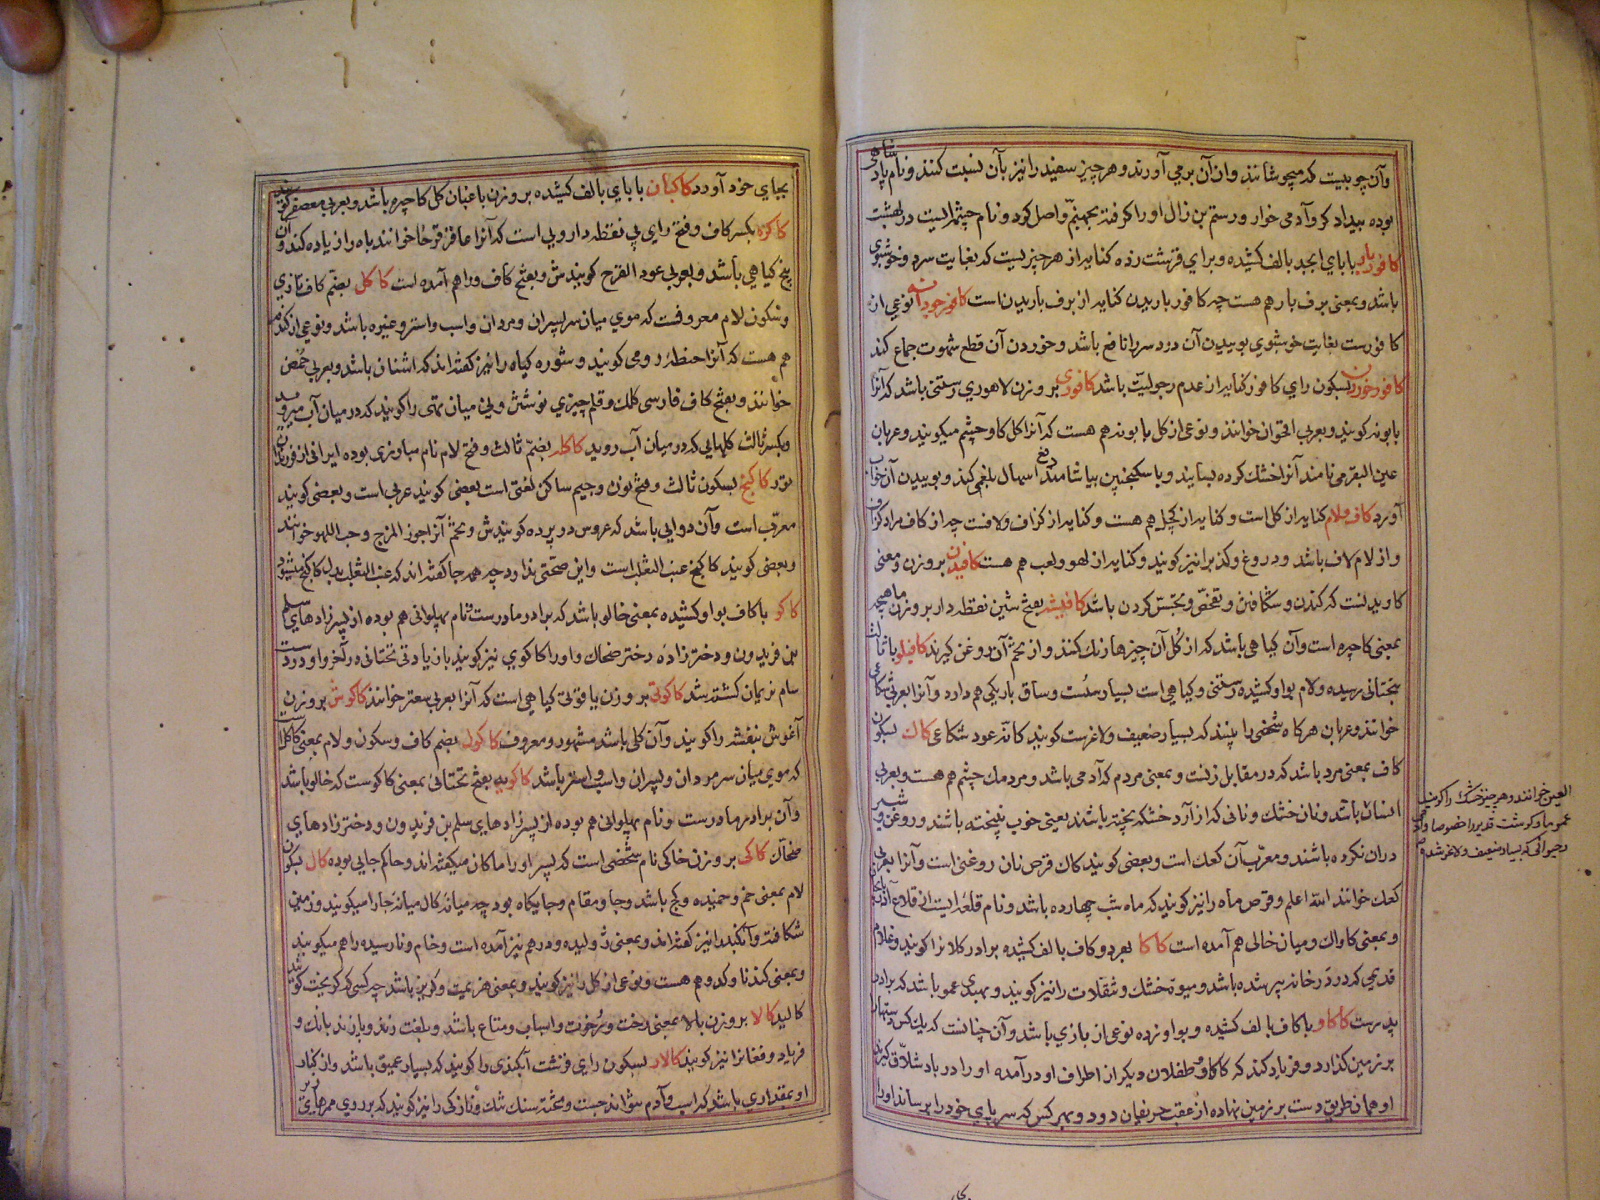 وآن چوبیست که میجوشانند وازان آن برمی آورند وهرچیز سفید را نیز بآن نسبت کنند ونام پادشاهی
بوده بیدادکر وآدمی خوار ورستم بن زال اورا کرفته بجهنم واصل کرد ونام چشمه ایست در بهشت
کافوربار بابای ابجد بالف کشیده وبرای قرشت زده کنایه از هرچیزیست که بغایت سرد وخوشبوی
باشد وبمعنی برف بار هم هست چه کافور باریدن کنایه از برف باریدن است کافور جودانه نوعی از
کافورست بغایت خوشبوی بوییدن آن درد سر را نافع باشد وخوردن آن قطع شهوت جماع کند
کافور خوردن بسکون رای کافور کنایه از عدم رجولیت باشد کافوری بروزن لاهوری رستنی باشد که آنرا
بابونه کویند وبعربی اقحوان خوانند ونوعی از کل بابونه هم هست که آنرا کل کاوچشم میکویند وعربان
عین البقر می نامند آنرا خشک کرده بسایند وبا سکنجبین بیاشامند دفع اسهال بلغمی کند وبوییدن آن خواب
آورد کاف ولام کنایه از کل است وکنایه از کچل هم هست وکنایه از کزاف ولافست چه از کاف مراد کزاف
واز لام لاف باشد ودروغ وکذب را نیز کویند وکنایه از لهو ولعب هم هست کافیدن بروزن ومعنی
کاویدنست که کندن وشکافتن وتفحص وتجسس کردن باشد کافیشه بفتح شین نقطه دار بروزن ماهیچه
بمعنی کاجره است وآن کیاهی باشد که از کل آن چیزها رنک کنند واز تخم آن روغن کیرند کافیلو با ثالث
بتحتانی رسیده ولام بواو کشیده رستنی وکیاهی است بسیار سست وساق باریکی هم دارد وآنرا بعربی شکاعی
خوانند وعربان هرکاه شخصی را بینند که بسیار ضعیف ولاغرست کویند کانه عود شکاعی کاک بسکون
کاف بمعنی مرد باشد که در مقابل زنست وبمعنی مردم که آدمی باشد ومردمک چشم هم هست وبعربی
انسان باشد ونان خشک ونانی که از آرد خشکه پخته باشند یعنی خوب نپیخته باشند وروغن وشیر
دران نکرده باشند ومعرب آن کعک است وبعضی کویند کاک قرص نان روغنی است وآنرا بعربی
کعک خوانند الله اعلم وقرص ماه را نیز کویند که ماه شب چهارده باشد ونام قلعه ایست از قلاع آذربایجان
وبمعنی کاواک ومیان خالی هم آمده است کاکا بعرد وکاف بالف کشیده برادر کلانرا کویند وغلام
قدیمی که در خانه پیر شده باشد ومیوه خشک ونقلات را نیز کویند وبهندی عمو باشد که برادر
پدرست کاکاو با کاف بالف کشیده وبواو زده نوعی از بازی باشد وآن چنانست که یک کس دستها را
بر زمین کذارد وفریاد کند که کاکاو وطفلان دیکر از اطراف او درآمده اورا در باد شلاق کیرند
او همان طریق دست بر زمین نهاده از عقب حریفان دود وبهرکس که سر پای خود را برساند اورا
العین خوانند وهرچیز خشک را کویند
عموما وکوشت قدید را خصوصا وآدمی
وحیوانی که بسیار ضعیف ولاغر شده
بجای خود آورد کاکبان با بای بالف کشیده بروزن باغبان کل کاجره باشد وبعربی معصفر کویند
کاکره بکسر کاف وفتح رای بی نقطه دارویی است که آنرا عاقرقرحا خوانند باه را زیاده کند وآن
بیخ کیاهی باشد وبعربی عود القرح کویندش وبفتح کاف وراهم آمده است کاکل بضم کاف تازی
وسکون لام معروفست که موی میان سر پسران ومردان واسب واستر وغیره باشد ونوعی از کندم
هم هست که آنرا حنطه رومی کویند وشوره کیاه را نیز کفته اند که اشنان باشد وبعربی حمض
خوانند وبفتح کاف فارسی کلک وقلم چیزی نوشتن ونی میان تهی را کویند که در میان آب میروید
وبکسر ثالث کلهایی که در میان آب روید کاکله بضم ثالث وفتح لام نام مبارزی بوده ایرانی از فرزندان
تور کاکنج بسکون ثالث وفتح نون وجیم ساکن لغتی است بعضی کویند عربی است وبعضی کویند
معرب است وآن دوایی باشد که عروس در پرده کویندش وتخم آنرا جوز المرج وحب اللهو خوانند
وبعضی کویند کاکنج عنب الثعلب است واین صحتی ندارد چه همه جا کفته اند که عنب الثعلب بدل کاکنج میشود
کاکو با کاف بواو کشیده بمعنی خالو باشد که برادر مادرست ونام پهلوانی هم بوده از پسرزادهای سلم
بن فریدون ودخترزاده دختر ضحاک واورا کاکوی نیز کویند بازیادتی تحتانی در آخر واو در دست
سام نریمان کشته شد کاکوتی بروزن یاقوتی کیاهی است که آنرا بعربی سعتر خوانند کاکوش بروزن
آغوش بنفشه را کویند وآن کلی باشد مشهور ومعروف کاکول بضم کاف وسکون ولام بمعنی کاکل است
که موی میان سر مردان وپسران واسب واستر باشد کاکویه بفتح تحتانی بمعنی کاکوست که خالو باشد
وآن برادر مادرست ونام پهلوانی هم بوده از پسرزادهای سلم بن فریدون ودخترزادهای
ضحاک کاکی بروزن خاکی نام شخصی است که پسر اورا ماکان میکفته اند وحاکم جایی بوده کال بسکون
لام بمعنی خم وخمیده وکج باشد وجا ومقام وجایکاه بود چه میانه کال میانه جا را میکویند وزمین
شکافته وآبکند را نیز کفته اند وبمعنی ژولیده ودرهم نیز آمده است وخام ونارسیده راهم میکویند
وبمعنی کندنا وکدو هم هست ونوعی از کل را نیز کویند وبمعنی هزیمت وکریز باشد چه کسی که کریخت کویند
کالید کالا بروزن بالا بمعنی رخت ورخوت واسباب ومتاع باشد وبلغت زند وپازند بانک و
فریاد وفغانرا نیز کویند کالار بسکون رای قرشت آبکندی را کویند که بسیار عمیق باشد واز کنار
او بمقداری باشد که اسب وآدم تواند جست وتخته سنک تنک ونازکی را نیز کویند که بر روی ممرهای